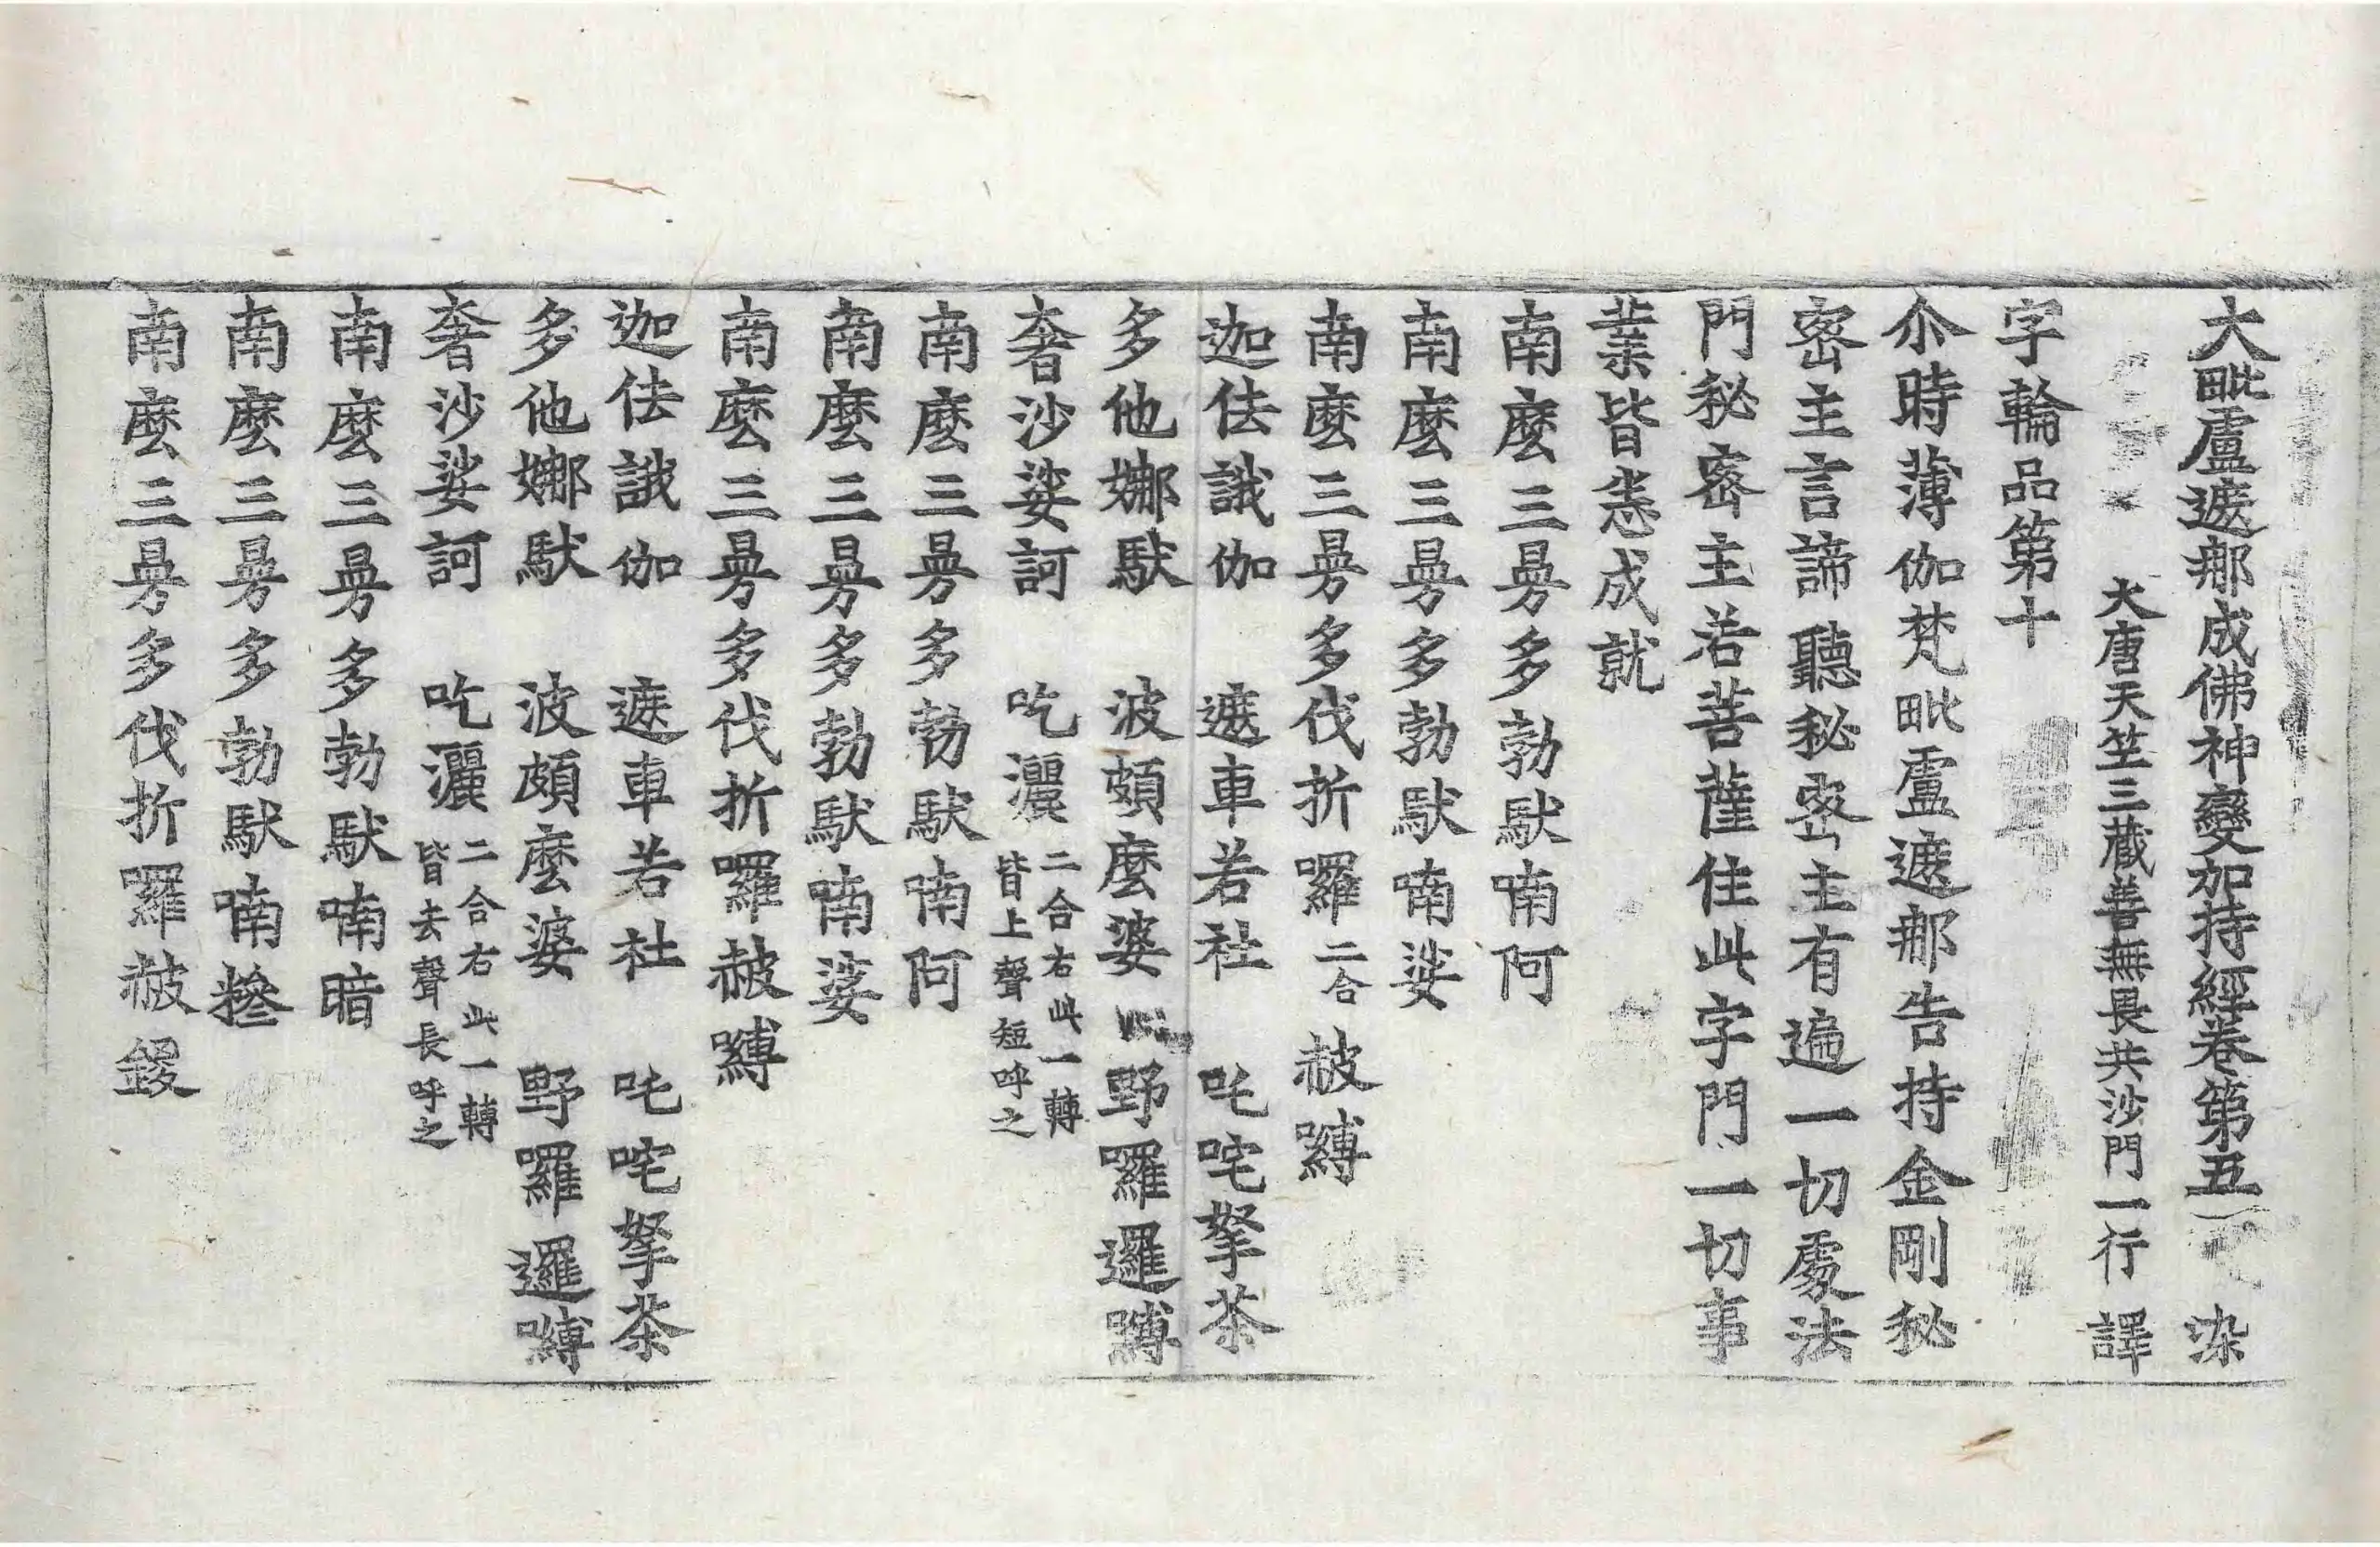 大毗盧遮那成佛神變加持經卷第五 染
大唐天竺三藏善無畏共沙門一行 譯
字輪品第十
尒時薄伽梵毗盧遮那告持金剛秘
密主言諦聽秘密主有遍一切處法
門秘密主若菩薩住此字門一切事
業皆悉成就
南麽三曼多勃馱喃阿
南麽三曼多勃馱喃娑
南麽三曼多伐折囉二合赧嚩
迦佉誐伽 遮車若社 吒咤拏荼
多他娜馱 波頗麽婆 野囉邏嚩
奢沙娑訶 吃灑二合右此一轉皆上聲短呼之
南麽三曼多勃馱喃阿
南麽三曼多勃馱喃娑
南麽三曼多伐折囉赧嚩
迦佉誐伽 遮車若社 吒咤拏荼
多他娜馱 波頗麽婆 野囉邏嚩
奢沙娑訶 吃灑二合右此一轉皆去聲長呼之
南麽三曼多勃馱喃暗
南麽三曼多勃馱喃糝
南麽三曼多伐折囉赧鍐